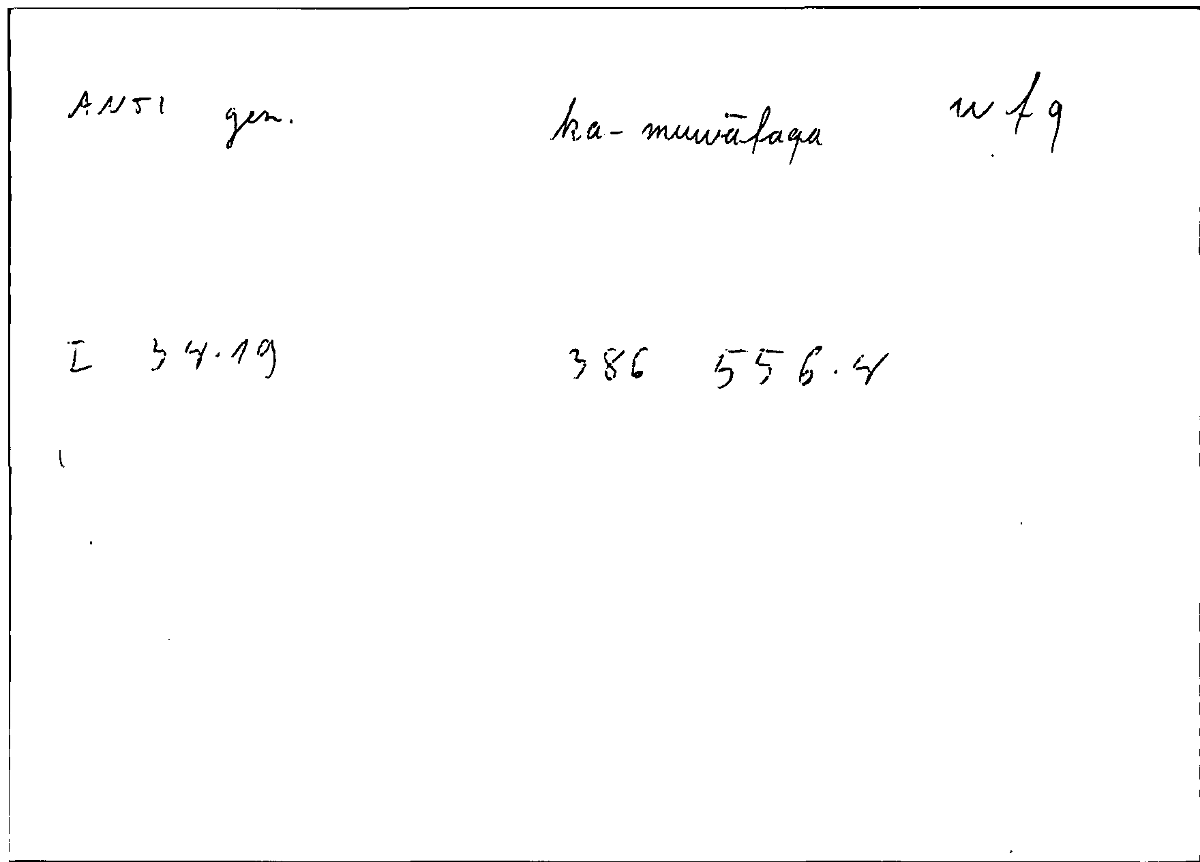 ANTI gen. ka-muwāfaqa wfq
I 34.19 386 556.4